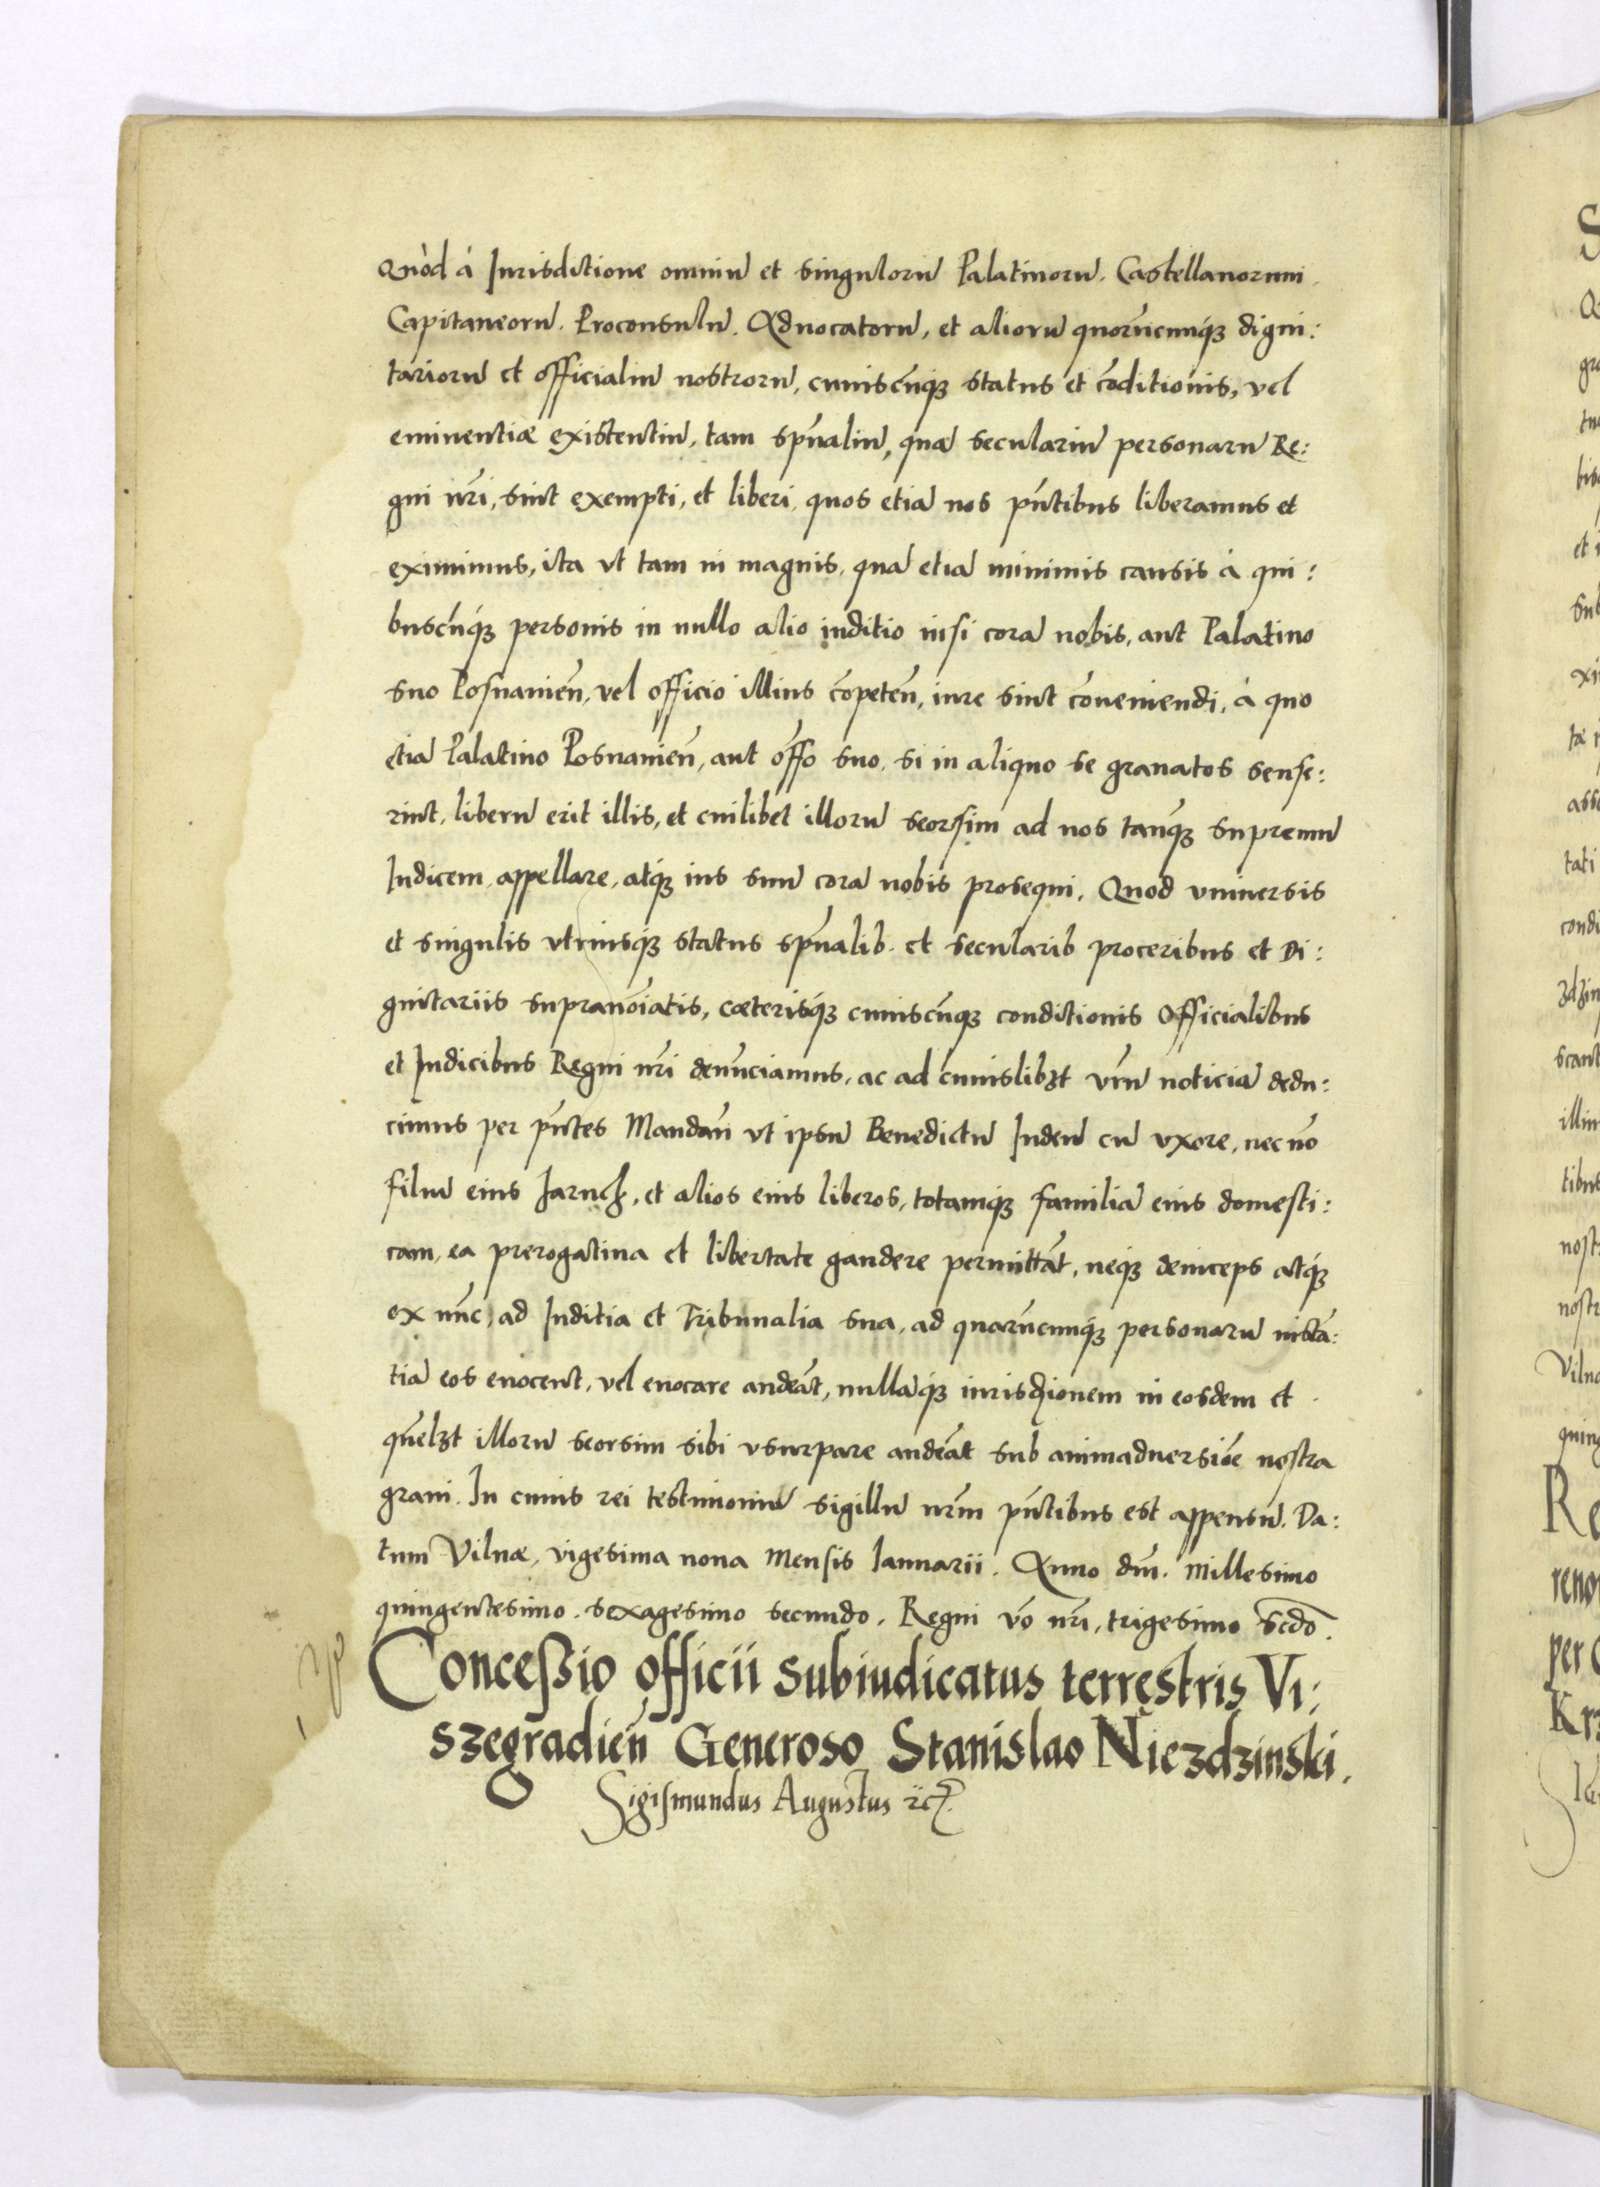 Quòd à Iurisdictione omniũ et singulorũ Palatinorũ. Castellanorum.
Capitaneorũ. Proconsulũ. Aduocatorũ, et aliorũ quorũcunq́ꝫ digni:
tariorũ et officialiũ nostrorũ, cuiuscũq́ꝫ status et cõditionis, vel
eminentiæ existentiũ, tam spũaliũ, quã seculariũ personarũ Re:
gni nr̃i, sint exempti, et liberi, quos etiã nos pñtibus liberamus et
eximimus, ita vt tam in magnis, quã etiã minimis causis à qui:
buscũq́ꝫ personis in nullo alio iuditio nisi corã nobis, aut Palatino
suo Posnanieñ, vel officio illius cõpeteñ, iure sint cõueniendi, à quo
etiã Palatino Posnanieñ, aut offo suo, si in aliquo se grauatos sense:
rint, liberũ erit illis, et cuilibet illorũ seorsim ad nos tanq̃ꝫ supremũ
Iudicem, appellare, atq́ꝫ ius suũ corã nobis prosequi. Quod vniuersis
et singulis vtriusq́ꝫ status spũalib. et secularib proceribus et Di:
gnitariis supranoĩatis, cæterisq́ꝫ cuiuscũqꝫ conditionis Officialibus
et Iudicibus Regni nr̃i denũciamus, ac ad cuiuslibꝫt vr̃m noticiã dedu:
cimus per pñtes Mandañ vt ipsũ Benedictũ Iudeũ cũ vxore, nec nõ
filiũ eius Jaruch, et alios eius liberos, totamq́ꝫ familiã eius domesti:
cam, ea prerogatiua et libertate gaudere permittãt, neqꝫ deinceps atq́ꝫ
ex nũc, ad Iuditia et Tribunalia sua, ad quarũcunq́ꝫ personarũ instã:
tiã eos euocent, vel euocare audeãt, nullãq́ꝫ iurisđionem in eosdem et
quẽlꝫt illorũ seorsim sibi vsurpare audeãt sub animaduersiõe nostra
graui. In cuius rei testimoniũ sigillũ nr̃m pñtibus est appensũ. Da:
tum Vilnæ, vigesima nona Mensis Ianuarii. Anno dñi. Millesimo
quingentesimo. sexagesimo secundo. Regni vo͂ nr̃i, trigesimo scd̃o.
Conceßio officii subiudicatus terrestris Vi:
szegradieñ Generoso Stanislao Niezdzinski.
Sigismundus Augustus ꝛcꝫ.